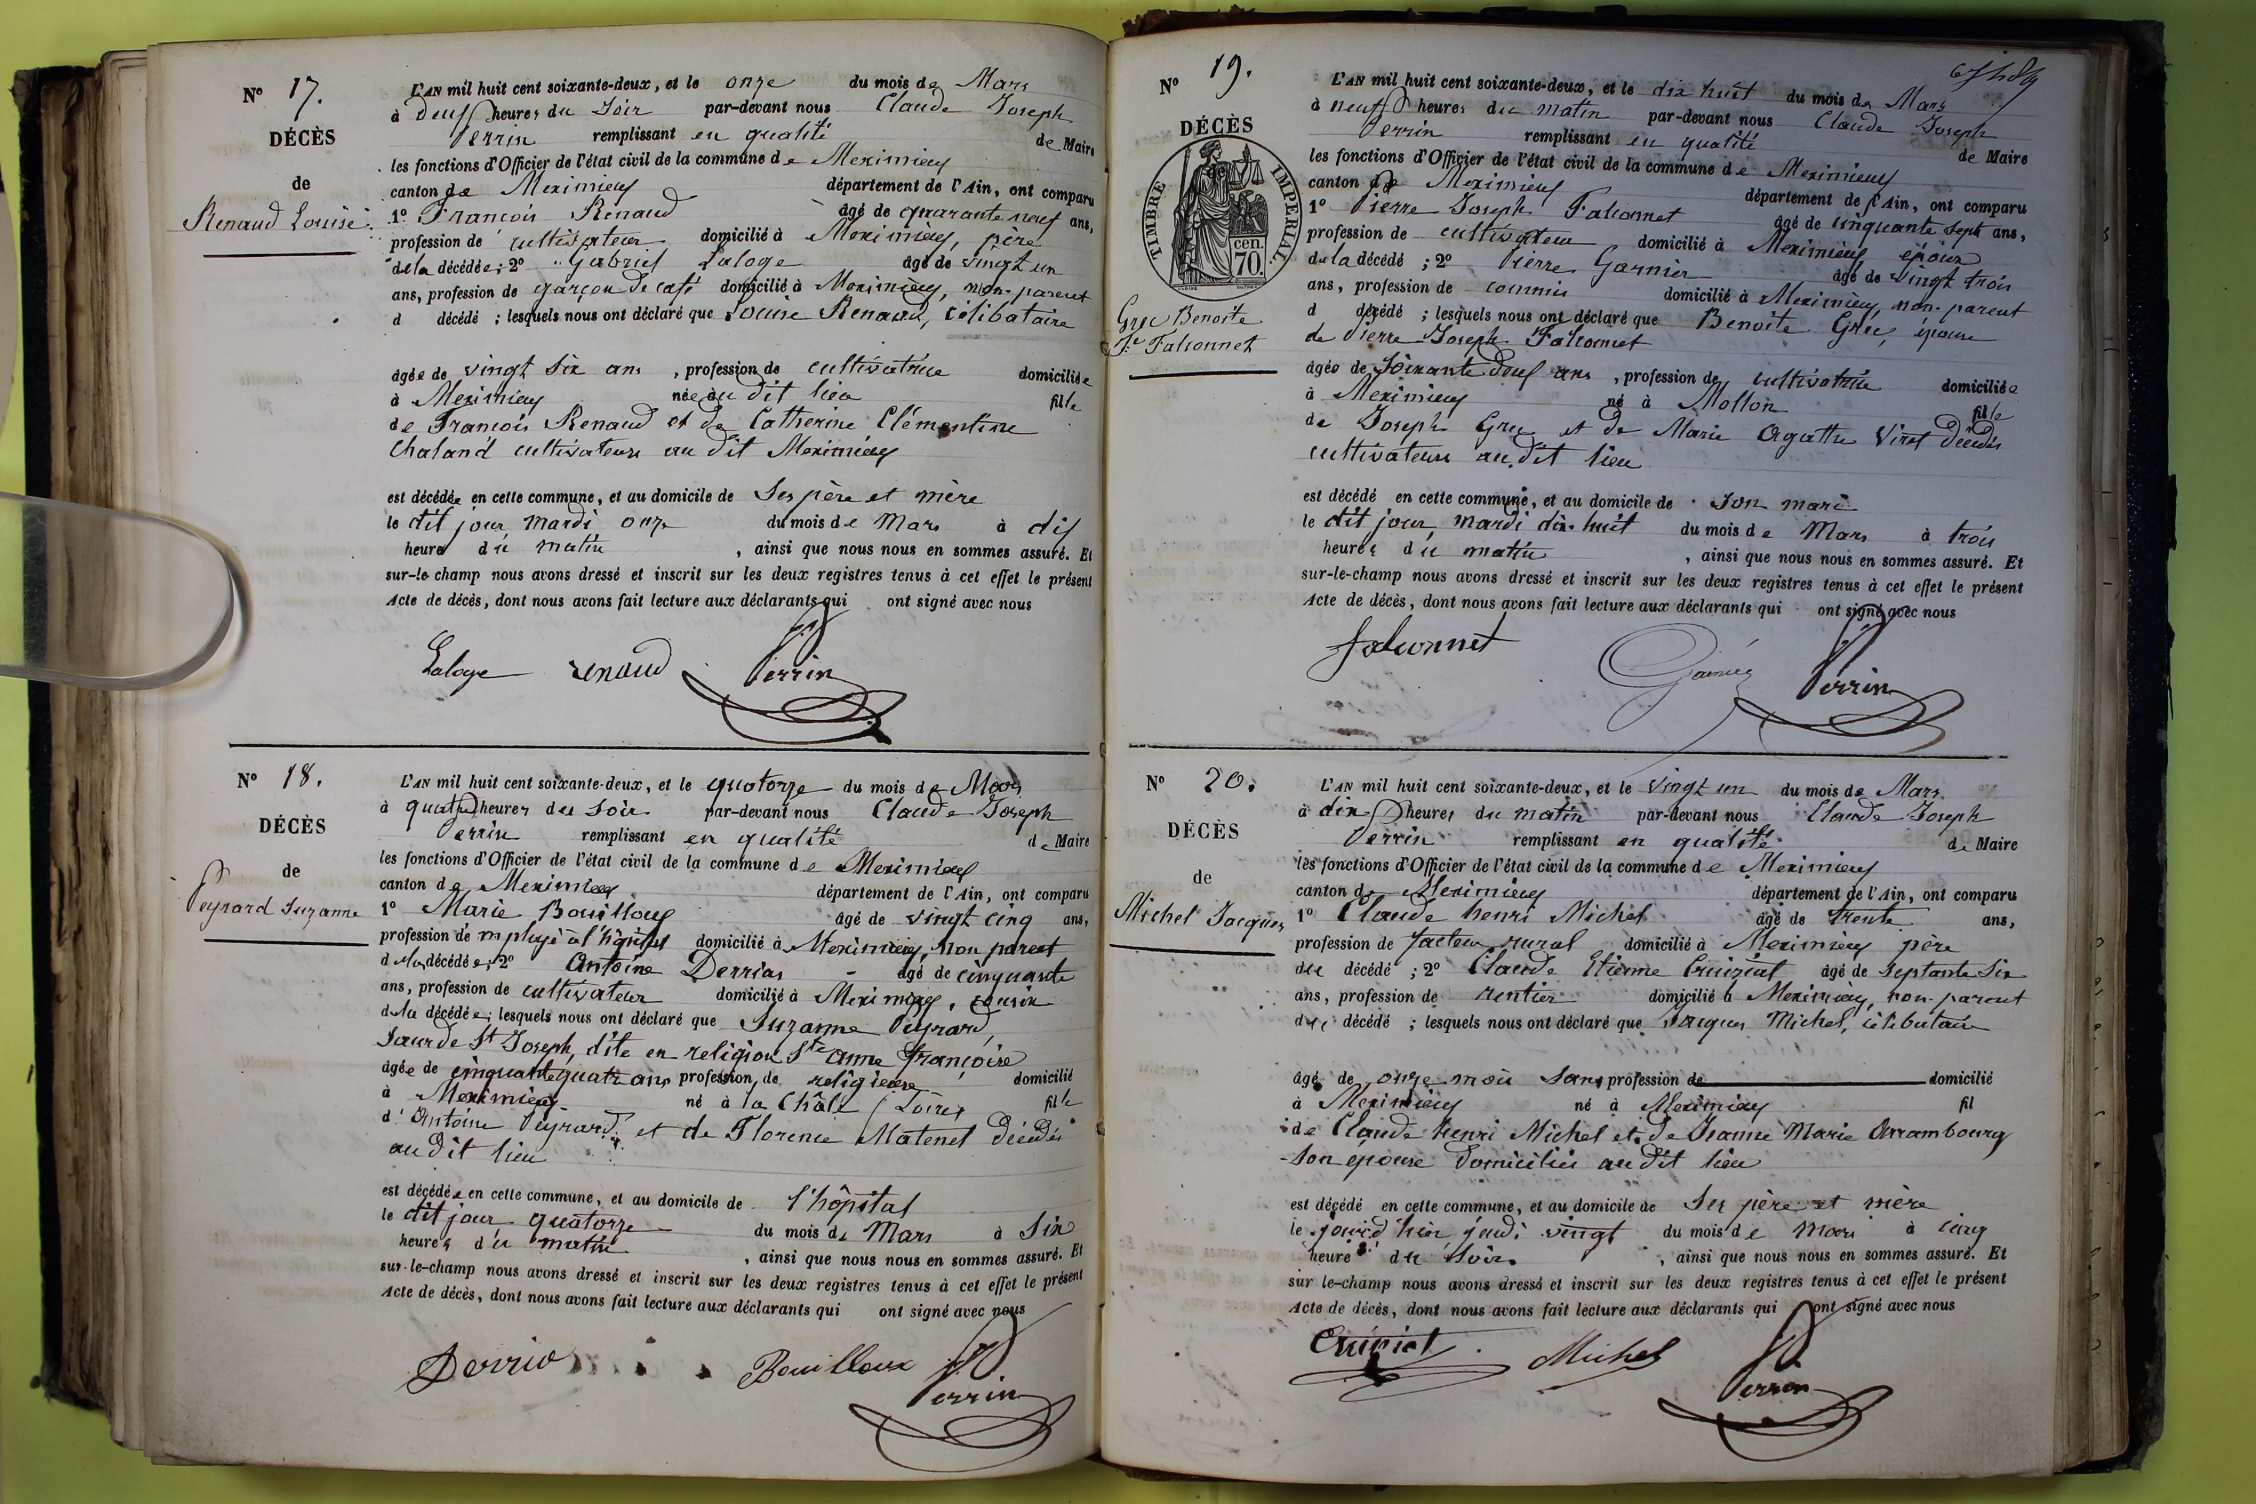 N° 17.
DÉCÈS
de
Renaud Louise
L'AN mil huit cent soixante-deux, et le onze du mois de Mars
à deux heures du soir par-devant nous Claude Joseph
Perrin remplissant en qualité de Maire
les fonctions d'Officier de l'état civil de la commune de Meximieux
canton de Meximieux département de l'Ain, ont comparu
1° François Renaud âgé de quarante neuf ans,
profession de cultivateur domicilié à Meximieux, père
de la décédée; 2° Gabriel Laloge âgé de vingt un
ans, profession de garçon de café domicilié à Meximieux, non parent
d décédé ; lesquels nous ont déclaré que Louise Renaud, célibataire
âgée de vingt six ans, profession de cultivatrice domiciliée
à Meximieux née au dit lieu fille
de François Renaud et de Catherine Clémentine
Chaland cultivateurs au dit Meximieux
est décédée en cette commune, et au domicile de ses père et mère
le dit jour mardi onze du mois de Mars à dix
heures du matin, ainsi que nous nous en sommes assuré. Et
sur-le-champ nous avons dressé et inscrit sur les deux registres tenus à cet effet le présent
Acte de décès, dont nous avons fait lecture aux déclarants qui ont signé avec nous
Laloge renaud Perrin
N° 18.
DÉCÈS
de
Peyrard Suzanne
L'AN mil huit cent soixante-deux, et le quatorze du mois de Mars
à quatre heures du soir par-devant nous Claude Joseph
Perrin remplissant en qualité de Maire
les fonctions d'Officier de l'état civil de la commune de Meximieux
canton de Meximieux département de l'Ain, ont comparu
1° Marie Bouilloux âgé de vingt cinq ans,
profession de employé à l'hôpital domicilié à Meximieux, non parent
de la décédée; 2° Antoine Derrias âgé de cinquante
ans, profession de cultivateur domicilié à Meximieux, cousin
de la décédée; lesquels nous ont déclaré que Suzanne Peyrard,
Sœur de St Joseph, dite en religion Ste Anne Françoise
âgée de cinquante quatre ans profession de religieuse domicilié
à Meximieux né à la Châle (Loire) fille
d'Antoine Peyrard et de Florence Matenet décédés
au dit lieu
est décédée en cette commune, et au domicile de l'hôpital
le dit jour quatorze du mois de Mars à six
heures du matin, ainsi que nous nous en sommes assuré. Et
sur-le-champ nous avons dressé et inscrit sur les deux registres tenus à cet effet le présent
Acte de décès, dont nous avons fait lecture aux déclarants qui ont signé avec nous
Bouilloux Perrin
N° 19.
DÉCÈS
TIMBRE IMPÉRIAL
cen.
70.
Grec Benoite
Fe Falconnet
L'AN mil huit cent soixante-deux, et le dix huit du mois de Mars
à neuf heures du matin par-devant nous Claude Joseph
Perrin remplissant en qualité de Maire
les fonctions d'Officier de l'état civil de la commune de Meximieux
canton de Meximieux département de l'Ain, ont comparu
1° Pierre Joseph Falconnet âgé de cinquante sept ans,
profession de cultivateur domicilié à Meximieux époux
de la décédé ; 2° Pierre Garnier âgé de vingt trois
ans, profession de commis domicilié à Meximieux, non parent
d décédé ; lesquels nous ont déclaré que Benoite Grec, épouse
de Pierre Joseph Falconnet
âgée de soixante deux ans, profession de cultivatrice domiciliée
à Meximieux né à Mollon fille
de Joseph Grec et de Marie Agathe Viret décédés
cultivateurs au dit lieu
est décédé en cette commune, et au domicile de son mari
le dit jour mardi dix huit du mois de Mars à trois
heures du matin, ainsi que nous nous en sommes assuré. Et
sur-le-champ nous avons dressé et inscrit sur les deux registres tenus à cet effet le présent
Acte de décès, dont nous avons fait lecture aux déclarants qui ont signé avec nous
falconnet Garnier Perrin
N° 20.
DÉCÈS
de
Michel Jacques
L'AN mil huit cent soixante-deux, et le vingt un du mois de Mars
à dix heures du matin par-devant nous Claude Joseph
Perrin remplissant en qualité de Maire
les fonctions d'Officier de l'état civil de la commune de Meximieux
canton de Meximieux département de l'Ain, ont comparu
1° Claude henri Michel âgé de trente ans,
profession de facteur rural domicilié à Meximieux père
du décédé ; 2° Claude Etienne Cruiziat âgé de septante six
ans, profession de rentier domicilié à Meximieux, non parent
du décédé ; lesquels nous ont déclaré que Jacques Michel, célibataire
âgé de onze mois sans profession de domicilié
à Meximieux né à Meximieux fil
de Claude henri Michel et de Jeanne Marie Arrambourg
son épouse domiciliés au dit lieu
est décédé en cette commune, et au domicile de ses père et mère
le jour d'hier jeudi vingt du mois de mars à cinq
heures du soir, ainsi que nous nous en sommes assuré. Et
sur le-champ nous avons dressé et inscrit sur les deux registres tenus à cet effet le présent
Acte de décès, dont nous avons fait lecture aux déclarants qui ont signé avec nous
Michel Perrin